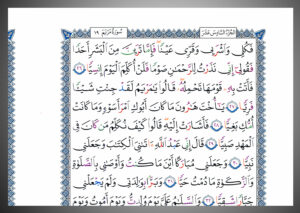 الجزء السادس عشر سورة مريم ١٩
فَكُلِى وَٱشْرَبِى وَقَرِّى عَيْنًا فَإِمَّا تَرَيِنَّ مِنَ ٱلْبَشَرِ أَحَدًا
فَقُولِىٓ إِنِّى نَذَرْتُ لِلرَّحْمَٰنِ صَوْمًا فَلَنْ أُكَلِّمَ ٱلْيَوْمَ إِنسِيًّا ٢٦
فَأَتَتْ بِهِۦ قَوْمَهَا تَحْمِلُهُۥ قَالُوا۟ يَٰمَرْيَمُ لَقَدْ جِئْتِ شَيْـًٔا
فَرِيًّا ٢٧ يَٰٓأُخْتَ هَٰرُونَ مَا كَانَ أَبُوكِ ٱمْرَأَ سَوْءٍ وَمَا كَانَتْ
أُمُّكِ بَغِيًّا ٢٨ فَأَشَارَتْ إِلَيْهِ قَالُوا۟ كَيْفَ نُكَلِّمُ مَن كَانَ فِى
ٱلْمَهْدِ صَبِيًّا ٢٩ قَالَ إِنِّى عَبْدُ ٱللَّهِ ءَاتَىٰنِىَ ٱلْكِتَٰبَ وَجَعَلَنِى
نَبِيًّا ٣٠ وَجَعَلَنِى مُبَارَكًا أَيْنَ مَا كُنتُ وَأَوْصَٰنِى بِٱلصَّلَوٰةِ
وَٱلزَّكَوٰةِ مَا دُمْتُ حَيًّا ٣١ وَبَرًّۢا بِوَٰلِدَتِى وَلَمْ يَجْعَلْنِى
جَبَّارًا شَقِيًّا ٣٢ وَٱلسَّلَٰمُ عَلَىَّ يَوْمَ وُلِدتُّ وَيَوْمَ أَمُوتُ وَيَوْمَ